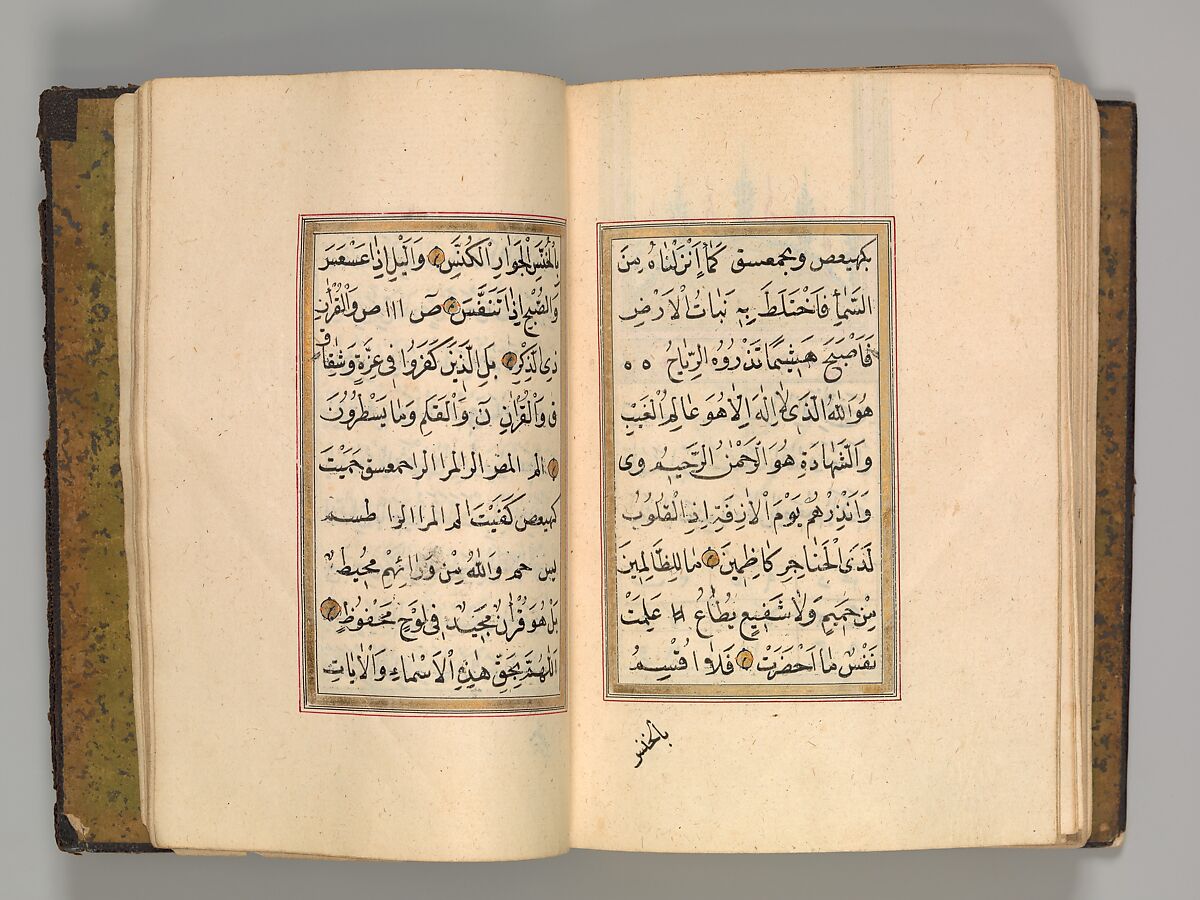 بكهيعص وبحمعسق كَمَاءٍ اَنْزَلْنَاهُ مِنَ
السَّمَاءِ فَاخْتَلَطَ بِهِ نَبَاتُ الْاَرْضِ
فَاَصْبَحَ هَشِيمًا تَذْرُوهُ الرِّيَاحُ ه ه
هُوَ اللهُ الَّذِى لَا اِلٰهَ اِلَّا هُوَ عَالِمُ الْغَيْبِ
وَالشَّهَادَةِ هُوَ الرَّحْمٰنُ الرَّحِيمُ وى
وَاَنْذِرْهُمْ يَوْمَ الْاٰزِفَةِ اِذِ الْقُلُوبُ
لَدَى الْحَنَاجِرِ كَاظِمِينَ مَا لِلظَّالِمِينَ
مِنْ حَمِيمٍ وَلَا شَفِيعٍ يُطَاعُ عَلِمَتْ
نَفْسٌ مَا اَحْضَرَتْ فَلَا اُقْسِمُ
بالخنس
بِالْخُنَّسِ الْجَوَارِ الْكُنَّسِ وَالَّيْلِ اِذَا عَسْعَسَ
وَالصُّبْحِ اِذَا تَنَفَّسَ صٓ ١١١ ص وَالْقُرْاٰنِ
ذِى الذِّكْرِ بَلِ الَّذِينَ كَفَرُوا فِى عِزَّةٍ وَشِقَاقٍ
ق وَالْقُرْاٰنِ نٓ وَالْقَلَمِ وَمَا يَسْطُرُونَ
الم المص الر المرا الرا حمعسق حَمَيْتَ
كهيعص كَفَيْتَ الم المرا الرا طسم
يس حم وَاللهُ مِنْ وَرَائِهِمْ مُحِيطٌ
بَلْ هُوَ قُرْاٰنٌ مَجِيدٌ فِى لَوْحٍ مَحْفُوظٍ
اَللّٰهُمَّ بِحَقِّ هٰذِهِ الْاَسْمَاءِ وَالْاٰيَاتِ